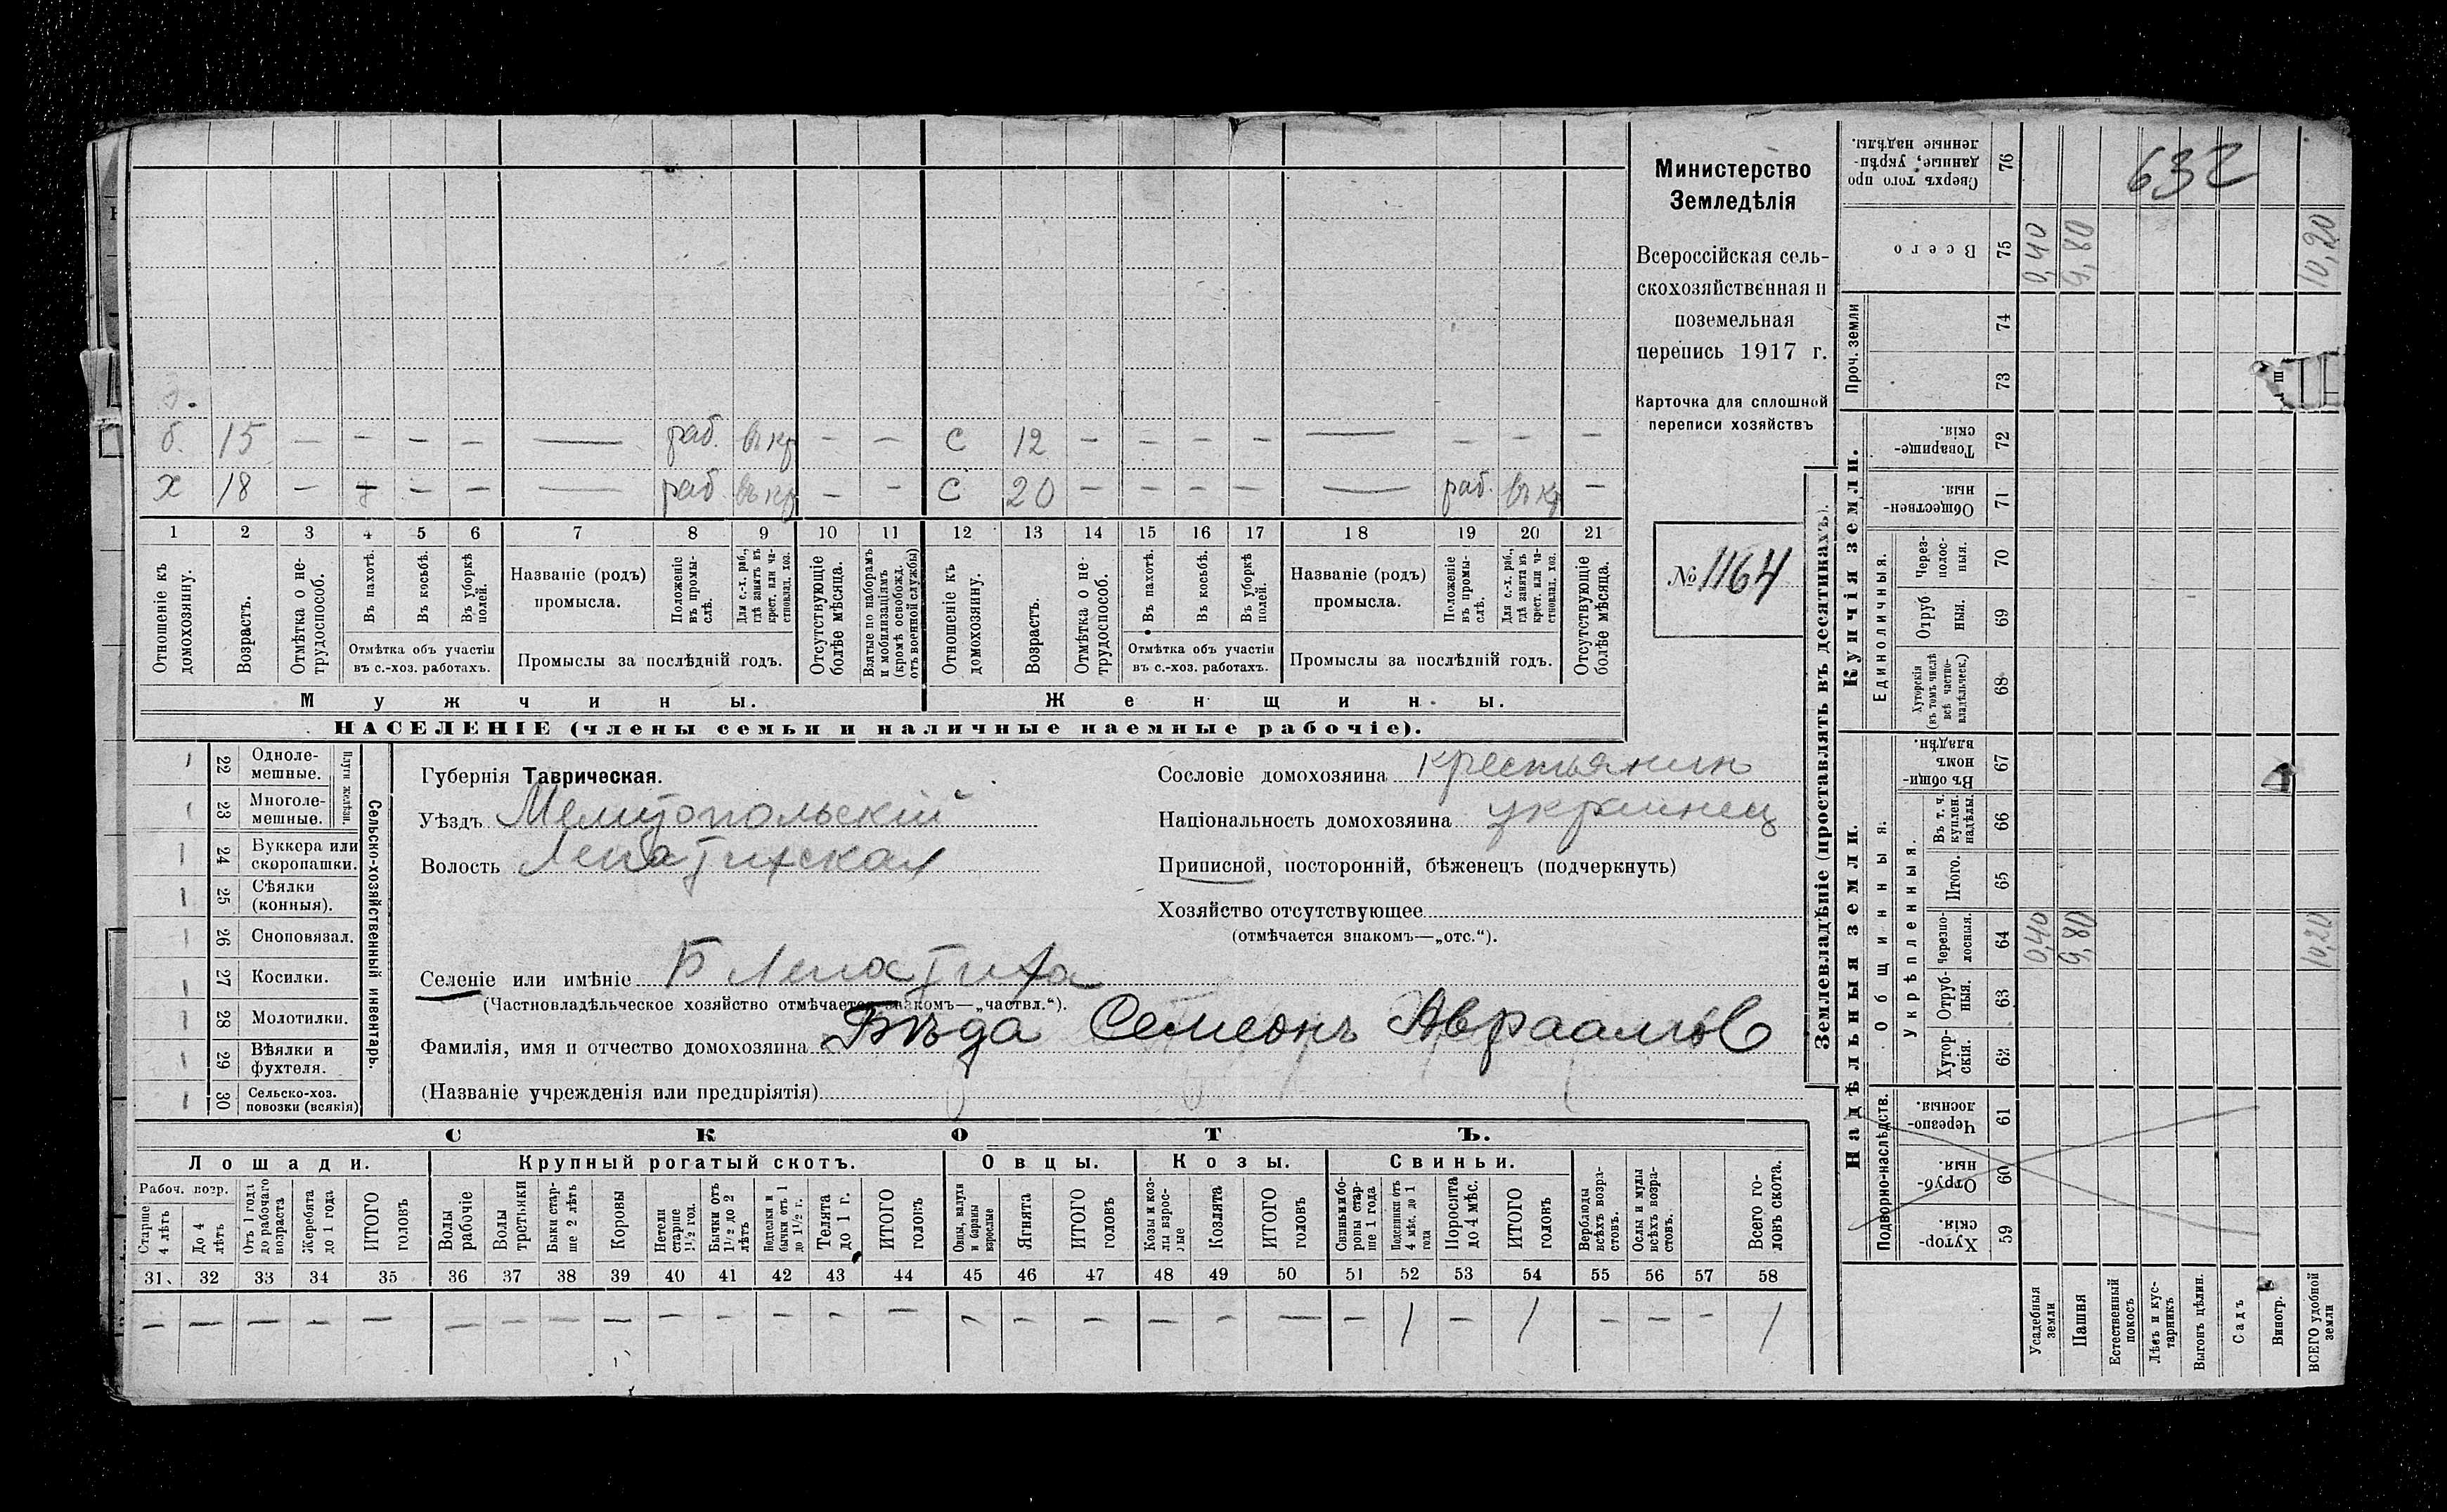 Министерство
Земледѣлія
Всероссійская сель-
скохозяйственная и
поземельная
перепись 1917 г.
Карточка для сплошной
переписи хозяйствъ
№ 1164
632
б. 15 — — — — — раб. въ кр — — с 12 — — — — — — — —
х 18 — — — — — раб въ кр — — с 20 — — — — — раб. въ кр —
1 2 3 4 5 6 7 8 9 10 11 12 13 14 15 16 17 18 19 20 21
Отношеніе къ домохозяину.
Возрастъ.
Отмѣтка о не-трудоспособ.
Въ пахотѣ.
Въ косьбѣ.
Въ уборкѣ полей.
Отмѣтка объ участіи въ с.-хоз. работахъ.
Названіе (родъ) промысла.
Положеніе въ промы-слѣ.
Для с.-х. раб., гдѣ занятъ въ крест. или ча-стновлад. хоз.
Промыслы за послѣдній годъ.
Отсутствующіе болѣе мѣсяца.
Взятые по наборамъ и мобилизаціямъ (кромѣ освобожд. отъ военной службы)
Отношеніе къ домохозяину.
Возрастъ.
Отмѣтка о не-трудоспособ.
Въ пахотѣ.
Въ косьбѣ.
Въ уборкѣ полей.
Отмѣтка объ участіи въ с.-хоз. работахъ.
Названіе (родъ) промысла.
Положеніе въ промы-слѣ.
Для с.-х. раб., гдѣ занята въ крест. или ча-стновлад. хоз.
Промыслы за послѣдній годъ.
Отсутствующіе болѣе мѣсяца.
Мужчины. Женщины.
НАСЕЛЕНІЕ (члены семьи и наличные наемные рабочіе).
Сельско-хозяйственный инвентарь.
Плуги желѣзн.
22 Одноле-мешные.
23 Многоле-мешные.
24 Буккера или скоропашки.
25 Сѣялки (конныя).
26 Сноповязал.
27 Косилки.
28 Молотилки.
29 Вѣялки и фухтеля.
30 Сельско-хоз. повозки (всякія)
Губернія Таврическая.
Уѣздъ Мелитопольскій
Волость Лепатихская
Селеніе или имѣніе Б Лепатиха
(Частновладѣльческое хозяйство отмѣчается знакомъ—„частвл.“).
Фамилія, имя и отчество домохозяина Бѣда Семеонъ Авраамов
(Названіе учрежденія или предпріятія)
Сословіе домохозяина крестьянин
Національность домохозяина украинец
Приписной, посторонній, бѣженецъ (подчеркнуть)
Хозяйство отсутствующее
(отмѣчается знакомъ—„отс.“).
СКОТЪ.
Лошади. Крупный рогатый скотъ. Овцы. Козы. Свиньи.
Рабоч. возр.
Старше 4 лѣтъ
До 4 лѣтъ
Отъ 1 года до рабочаго возраста
Жеребята до 1 года
ИТОГО головъ
Волы рабочіе
Волы третьяки
Быки стар-ше 2 лѣтъ
Коровы
Нетели старше 1½ год.
Бычки отъ 1½ до 2 лѣтъ
Подтелки и бычки отъ 1 до 1½ г.
Телята до 1 г.
ИТОГО головъ
Овцы, валухи и бараны взрослые
Ягнята
ИТОГО головъ
Козы и коз-лы взрос-лые
Козлята
ИТОГО головъ
Свиньи и бо-ровы стар-ше 1 года
Подсвинки отъ 4 мѣс. до 1 года
Поросята до 4 мѣс.
ИТОГО головъ
Верблюды всѣхъ возра-стовъ.
Ослы и мулы всѣхъ возра-стовъ.
Всего го-ловъ скота.
31 32 33 34 35 36 37 38 39 40 41 42 43 44 45 46 47 48 49 50 51 52 53 54 55 56 57 58
— — — — — — — — — — — — — — — — — — — — — 1 — 1 — — — 1
Землевладѣніе (проставлять въ десятинахъ).
Надѣльныя земли. Купчія земли. Проч. земли
Подворно-наслѣдств.
Общинныя.
Укрѣпленныя.
Единоличныя.
59 Хутор-скія.
60 Отруб-ныя.
61 Черезпо-лосныя.
62 Хутор-скія.
63 Отруб-ныя.
64 Черезпо-лосныя. 0,40 9,80 10,20
65 Итого.
66 Въ т. ч. куплен. надѣлы.
67 Въ общин-номъ владѣн.
68 Хуторскія (въ томъ числѣ всѣ частно-владѣльческ.)
69 Отруб ныя.
70 Через-полос-ныя.
71 Обществен-ныя.
72 Товарище-скія.
73
74
75 Всего 0,40 9,80 10,20
76 Сверхъ того про данные, укрѣп-ленные надѣлы.
Усадебныя земли
Пашня
Естественный покосъ
Лѣсъ и кус-тарникъ
Выгонъ цѣлин.
Садъ
Виногр.
ВСЕГО удобной земли